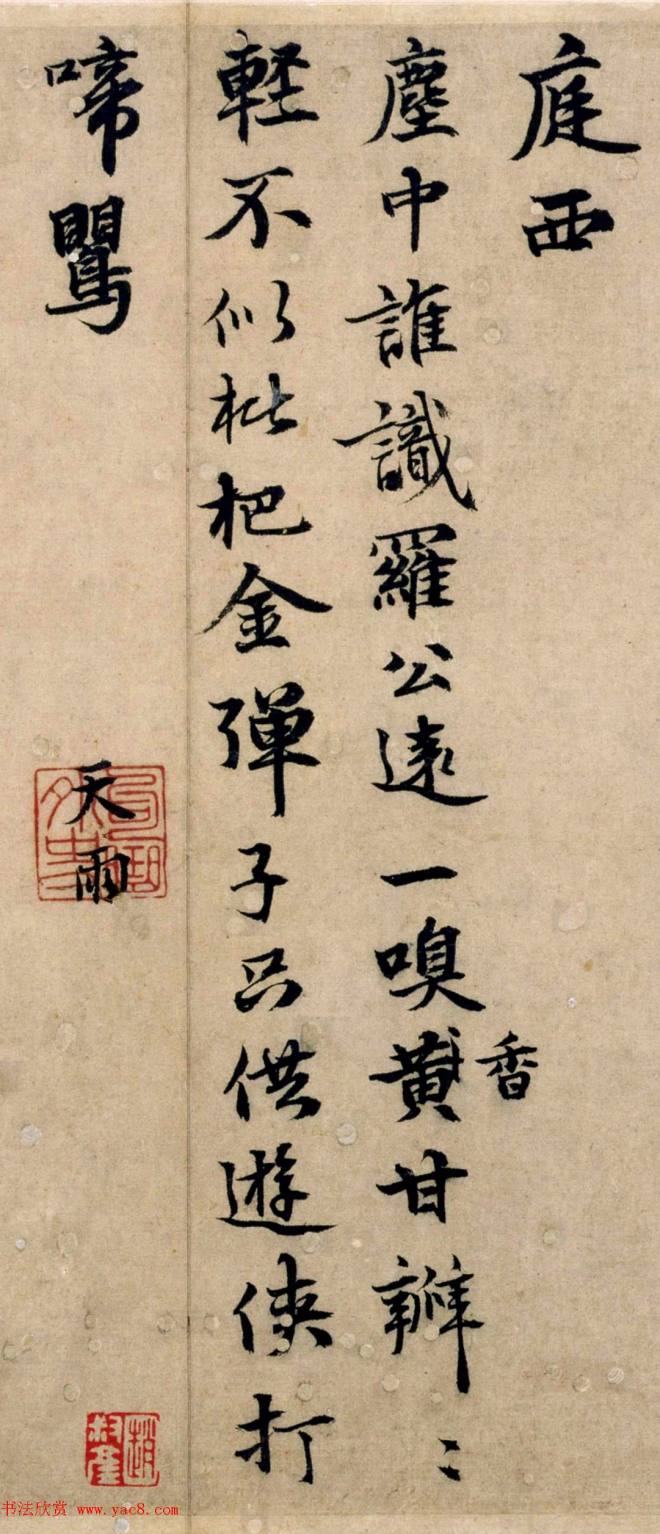 庭西
塵中誰識羅公遠一嗅黄甘瓣〻
香
輕不似枇杷金彈子只供遊俠打
啼鸎
天雨
句曲外史
书法欣赏 www.yac8.com